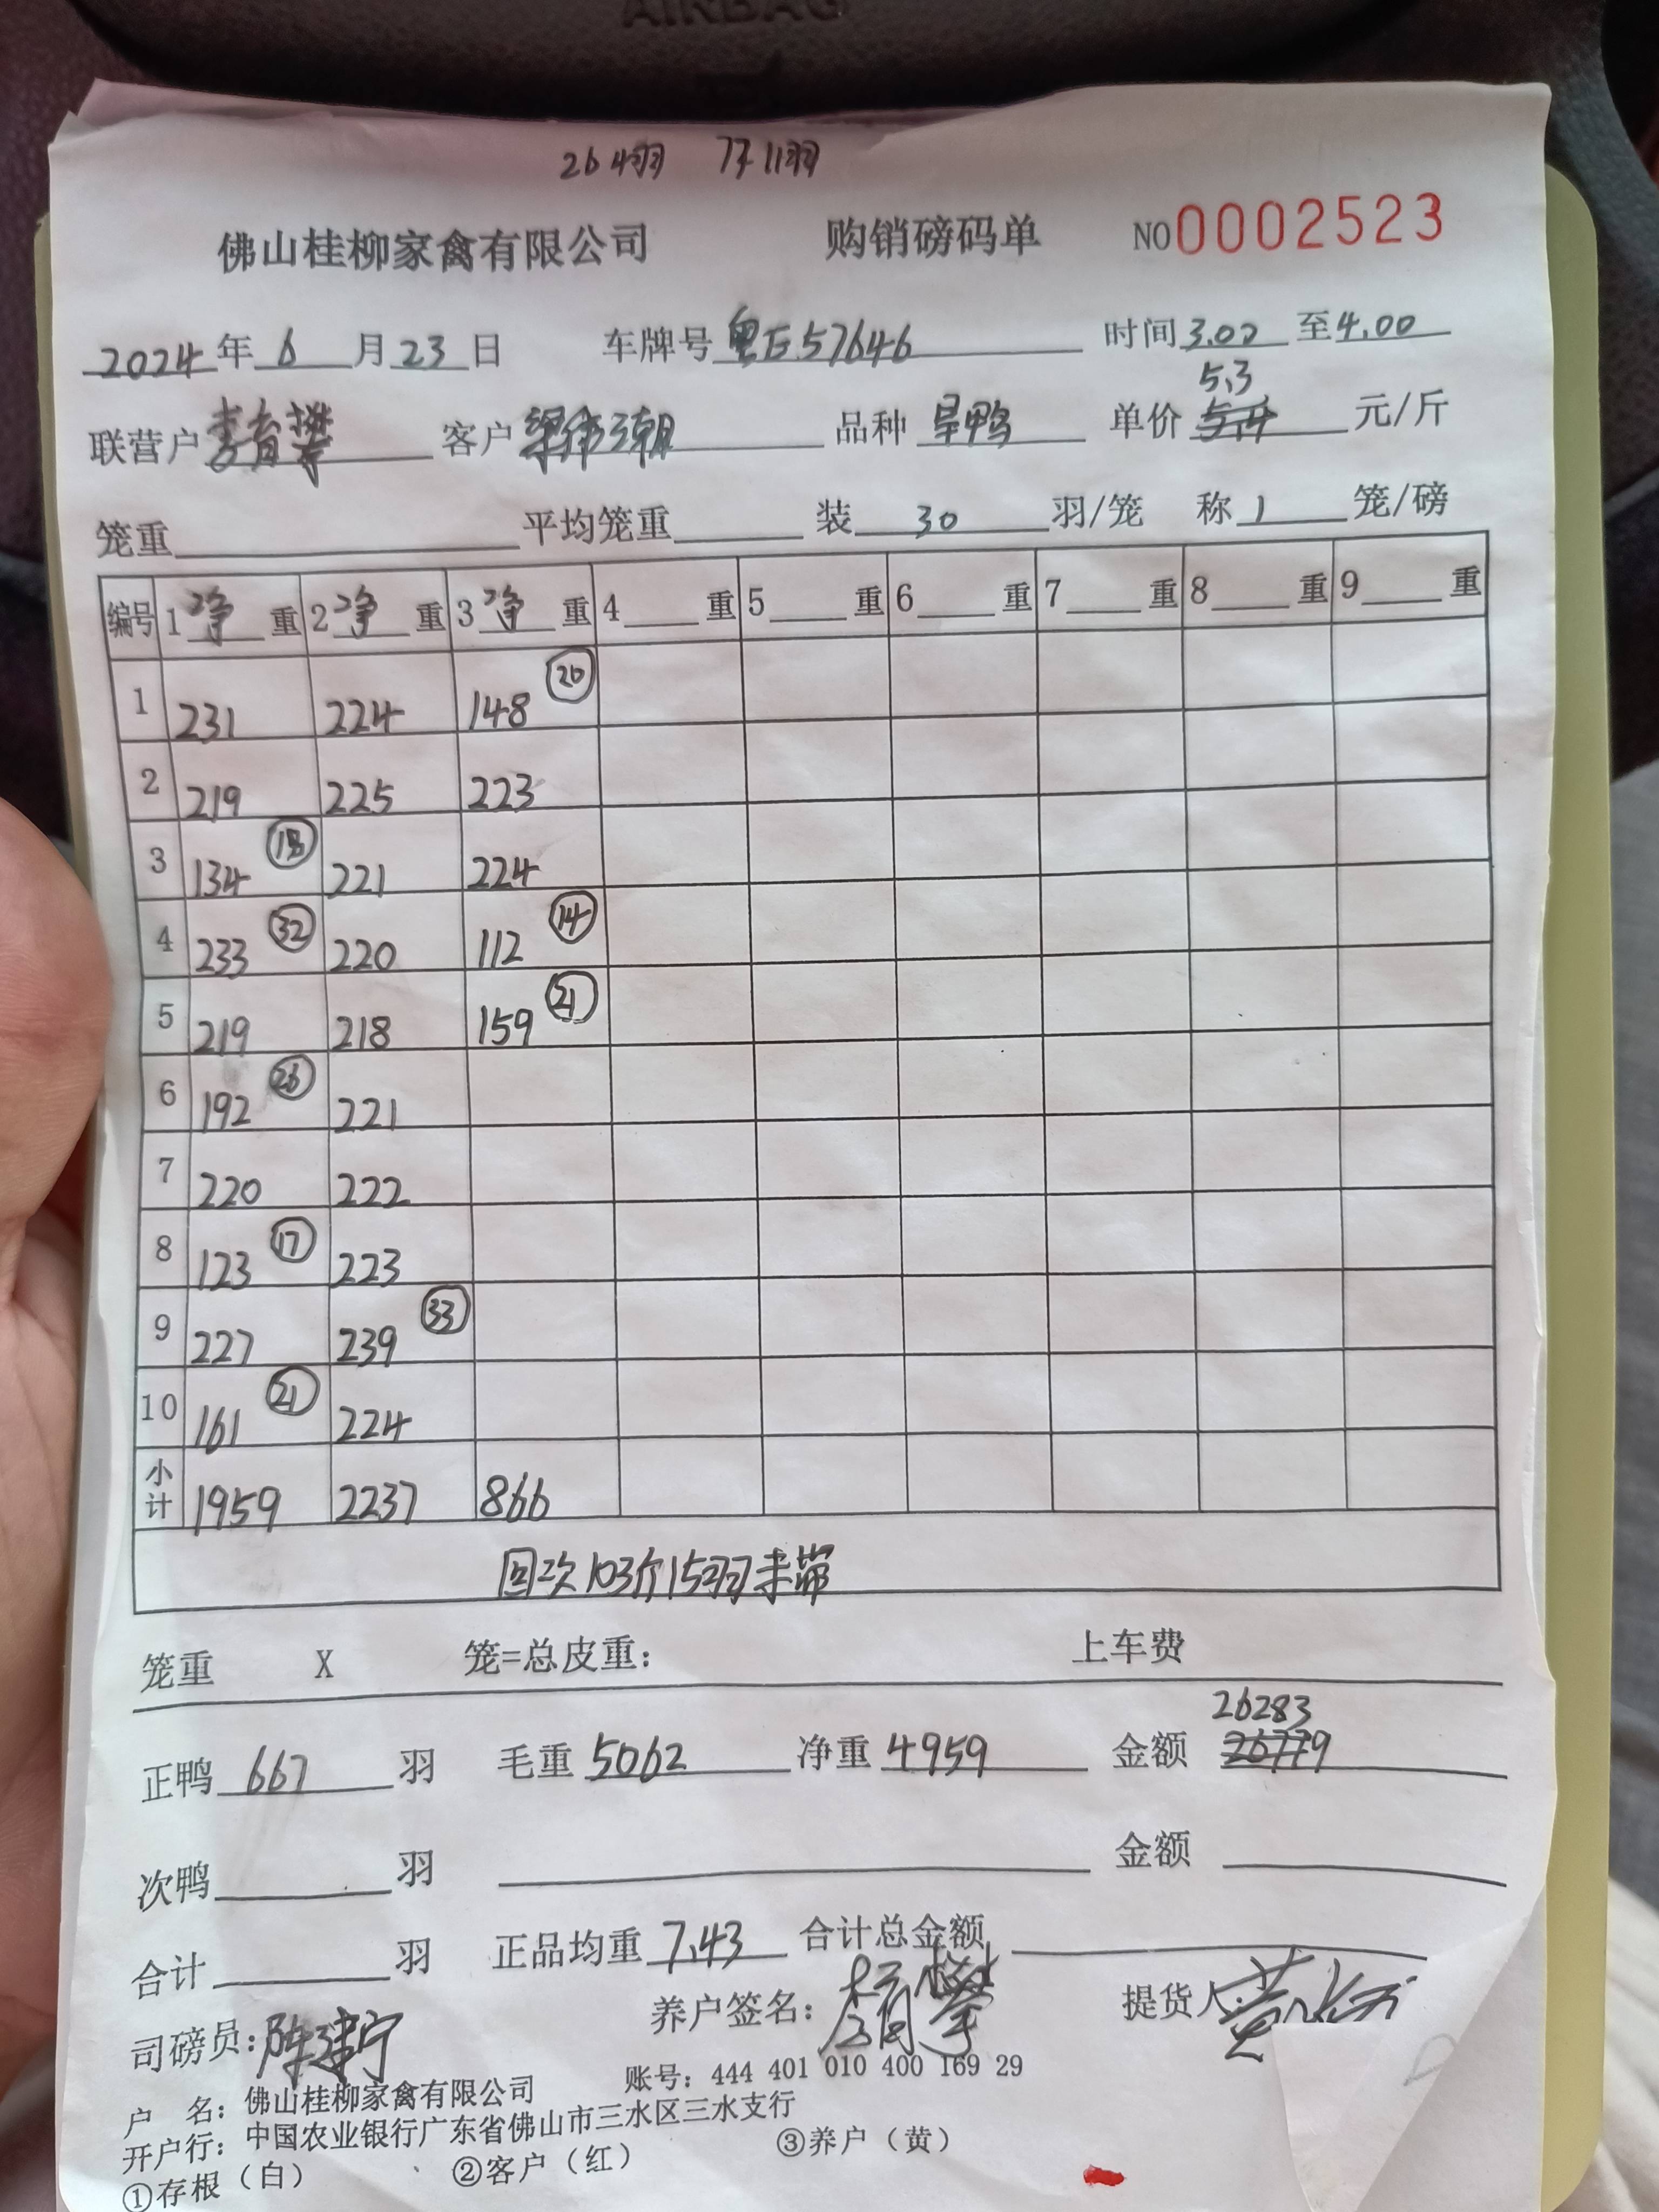 AIRBAG
264羽 冇11羽
佛山桂柳家禽有限公司 购销磅码单 NO0002523
2024年6月23日 车牌号粤E57646 时间3.00至4.00
5.3
联营户 客户梁伟潮 品种旱鸭 单价 元/斤
笼重 平均笼重 装30羽/笼 称1笼/磅
编号 1净重 2净重 3净重 4重 5重 6重 7重 8重 9重
1 231 224 148 20
2 219 225 223
3 134 18 221 224
4 233 32 220 112 14
5 219 218 159 21
6 192 26 221
7 220 222
8 123 17 223
9 227 239 33
10 161 21 224
小计 1959 2237 866
回次103斤15羽未带
笼重 X 笼=总皮重: 上车费
26283
正鸭667羽 毛重5062 净重4959 金额26779
次鸭 羽 金额
合计 羽 正品均重7.43 合计总金额
司磅员:陈建宁 养户签名: 提货人:
户 名：佛山桂柳家禽有限公司 账号：444 401 010 400 169 29
开户行：中国农业银行广东省佛山市三水区三水支行
①存根（白） ②客户（红） ③养户（黄）